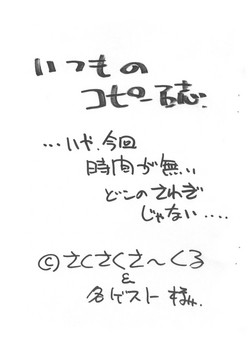 いつもの
コピー誌
…いや、今回
時間が無い
どこのさわぎ
じゃない....
©さくさくさ～くる
&
各ゲスト様